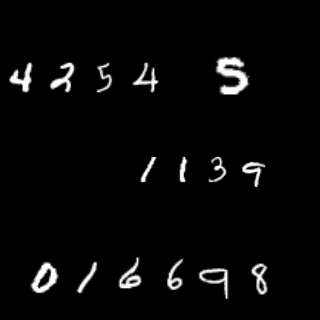 4254 5
1139
016698